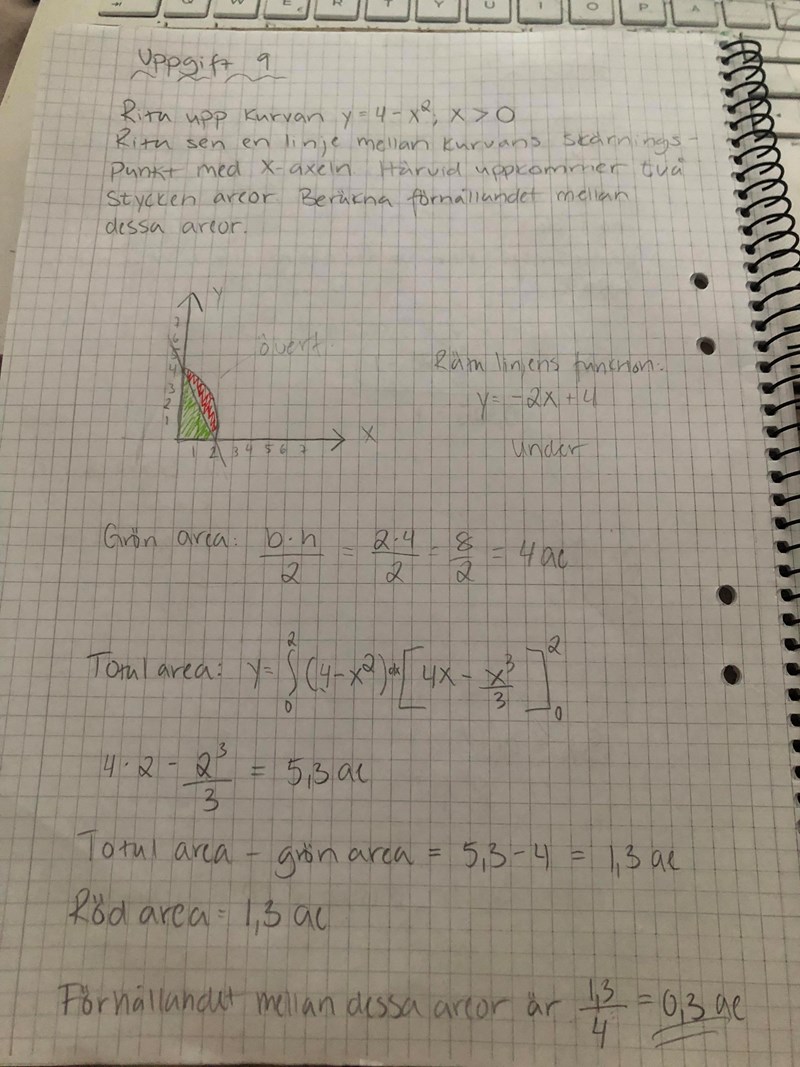 Uppgift 9
Rita upp kurvan y = 4 - x², x > 0
Rita sen en linje mellan kurvans skärnings-
punkt med x-axeln. Härvid uppkommer två
stycken areor. Beräkna förhållandet mellan
dessa areor.
Y
7
6
5
4
3
2
1
övert.
X
1 2 3 4 5 6 7
Räta linjens funktion:
y = -2x + 4
under
Grön area: b·h/2 = 2·4/2 = 8/2 = 4 ae
Total area: y = ∫₀² (4-x²) dx [4x - x³/3]₀²
4·2 - 2³/3 = 5,3 ae
Total area - grön area = 5,3 - 4 = 1,3 ae
Röd area = 1,3 ae
Förhållandet mellan dessa areor är 1,3/4 = 0,3 ae